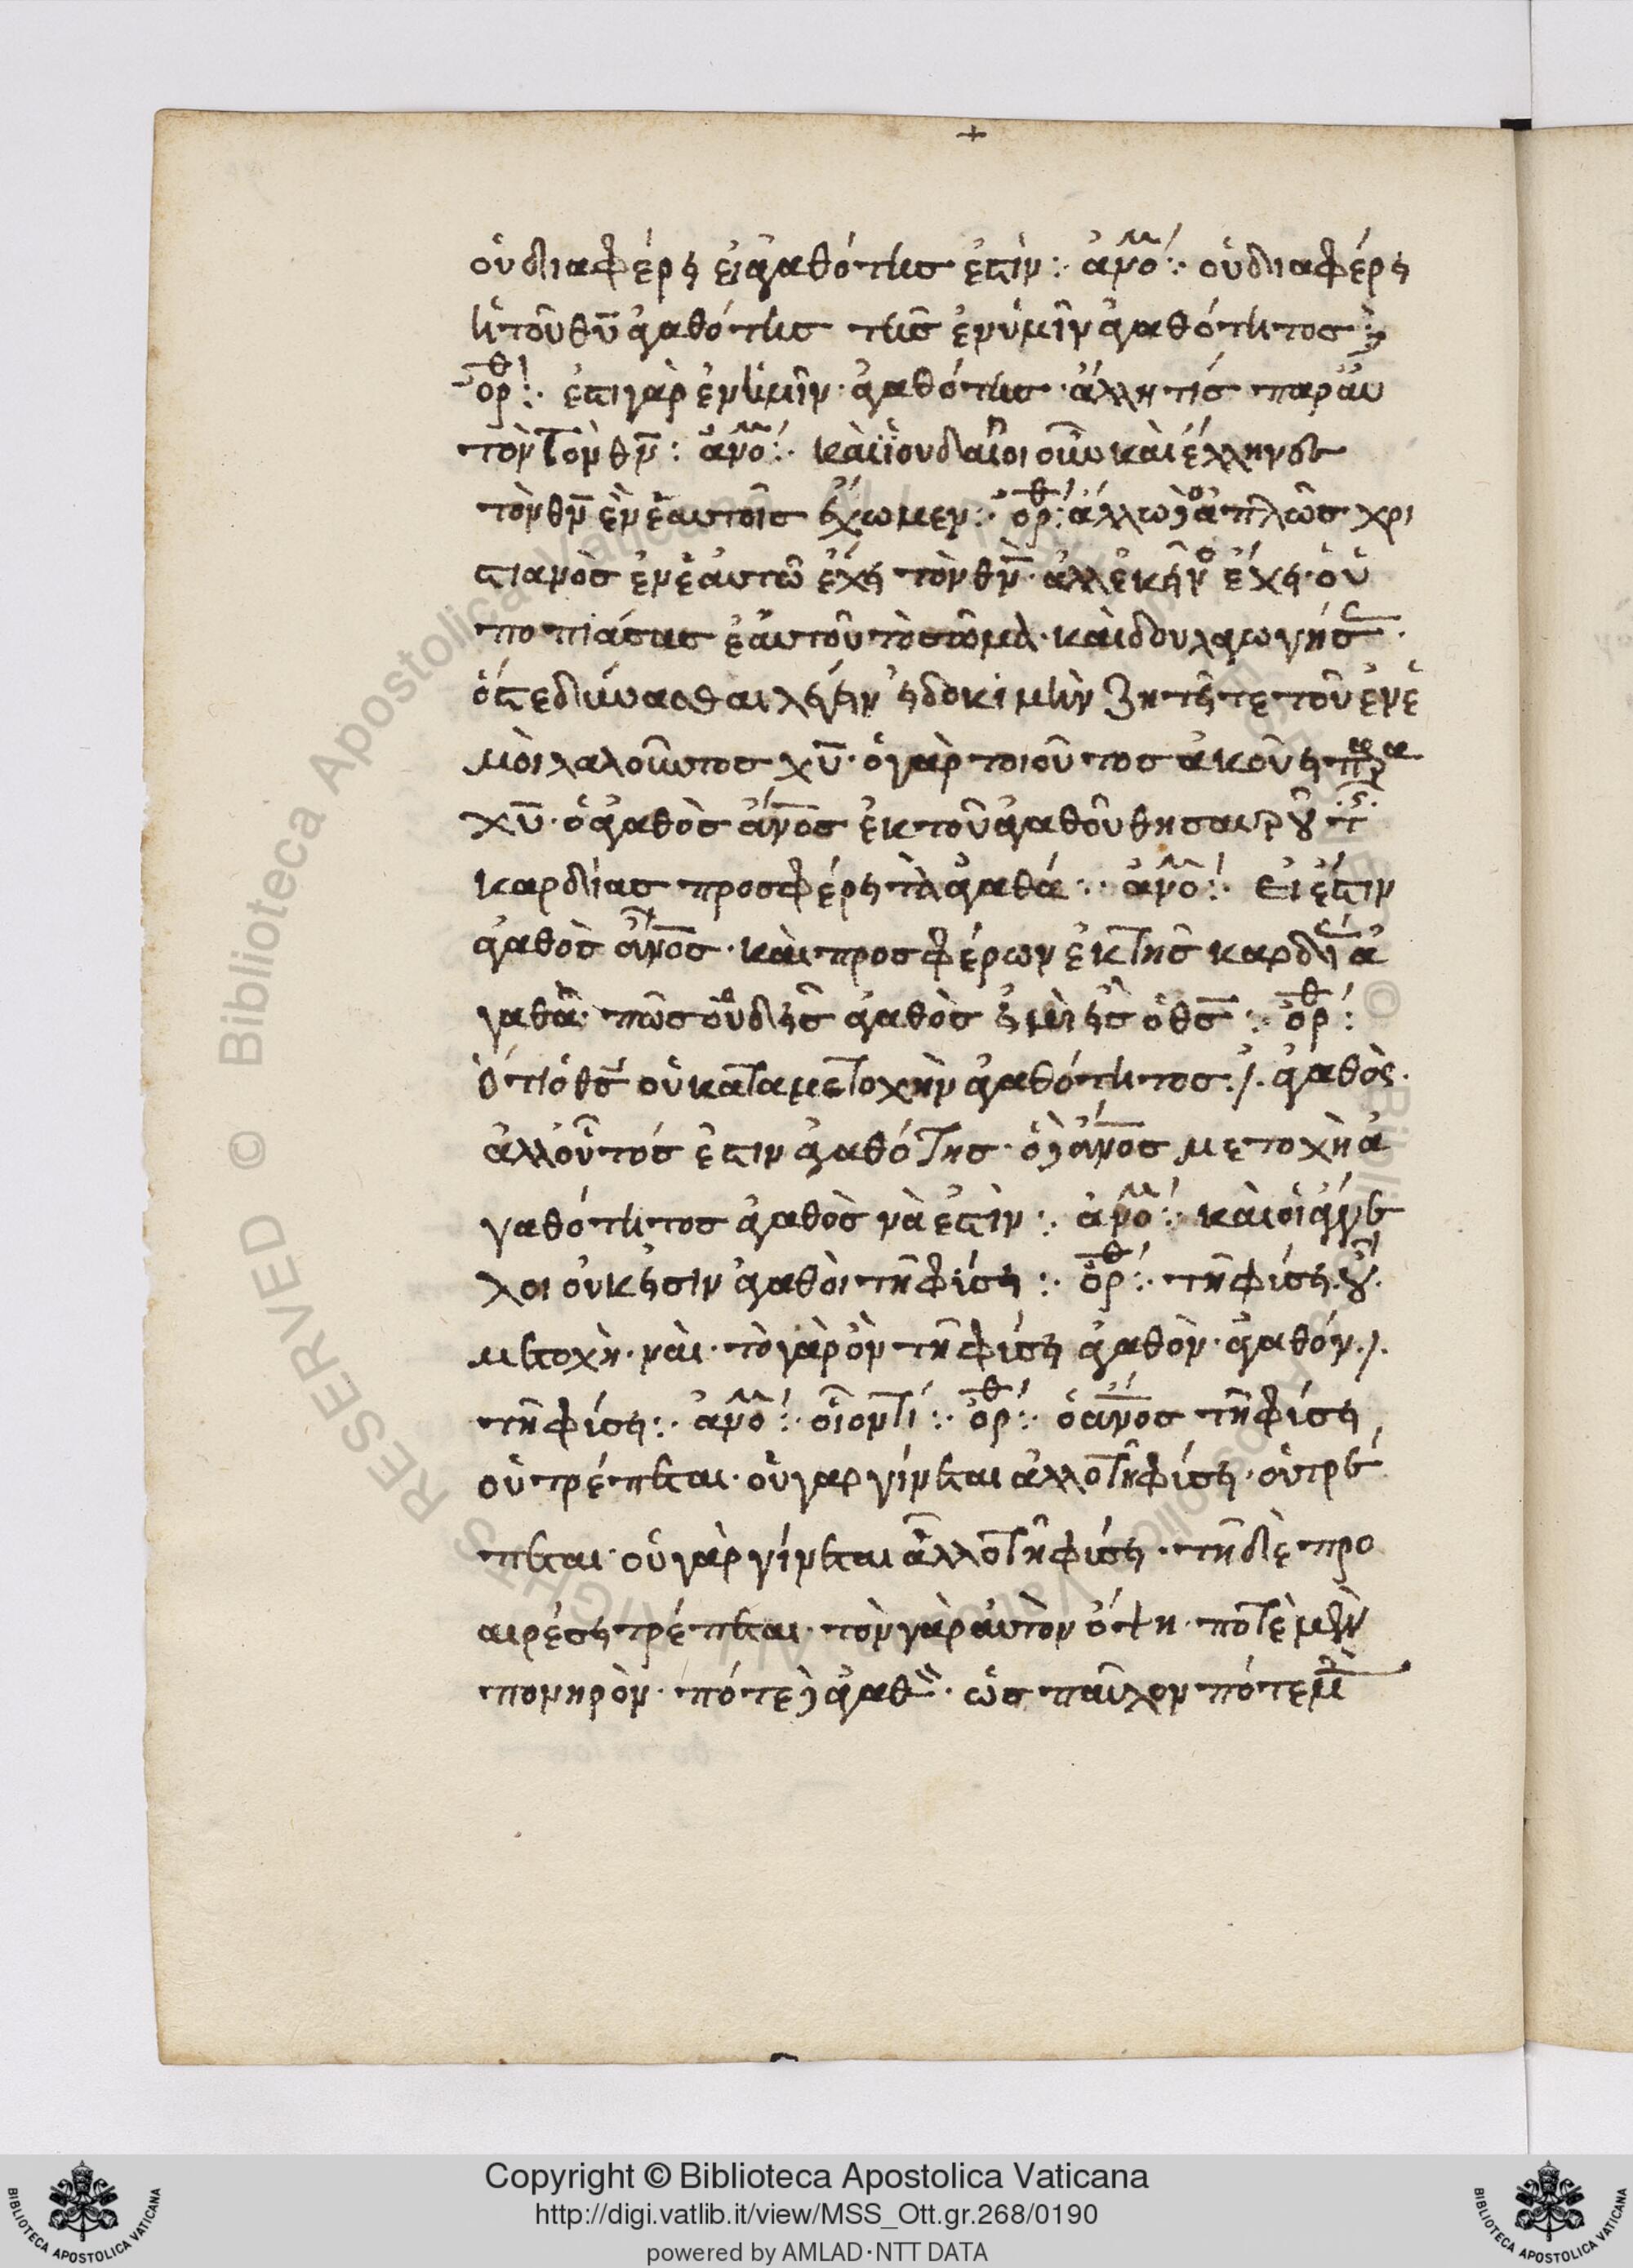 +
οὐ διαφέρει εἰ ἀγαθότης ἐστίν :· ἀνο :· οὐ διαφέρει
ἡ τοῦ θυ ἀγαθότης της ἐν ὑμῖν ἀγαθότητος
ορθ :· ἔστι γὰρ ἐν ἡμῖν · ἀγαθότης · ἄλλη τίς παρ αυ
τὸν τὸν θν : ἀνο :· καὶ ϊουδαῖοι οὖν καὶ έλληνες
τὸν θν ἐν ἑαυτοῖς έχωμεν :· ορθ : ἀλλ ὡ ἁπλῶς χρι
στιανὸς ἐν ἑαυτῶ ἔχη τὸν θν · ἀλλ ἐκεῖν έχη · ὁ ὑ
ποπιάσας ἑαυτοῦ τὸ σῶμα · καὶ δουλαγωγήσ ·
ζητεῖτε τοῦ ἐν ἐ
μοὶ λαλοῦντος χυ · ὁ γὰρ τοιοῦτος ἀκούει
χυ · ὁ ἀγαθὸς ἀνος ἐκ τοῦ ἀγαθοῦ θησαυρ
καρδίας προσφέρει τὰ ἀγαθά :· ἀνο :· Ει ἐστιν
ἀγαθὸς ἀνος · καὶ προσφέρων ἐκ της καρδί ἀ
γαθὰ · πῶς οὐδεὶς ἀγαθὸς εἰ μὴ εἷς ὁ θς :· ορθ :
ὅτι ὁ θς οὐ κατα μετοχὴν ἀγαθότητος ἀγαθὸς ·
ἀλλ οὗτός ἐστιν ἀγαθότης · ὁ ἀνος μετοχὴ ἀ
γαθότητος ἀγαθὸς νὰ ἐστὶν :· ἀνο :· καὶ οἱ ἀγγε
λοι οὐκ εἰσιν ἀγαθοὶ τῆ φύσει :· ορθ :· τῆ φύσει ου ·
μετοχὴ · ναὶ · τὸ γὰρ ὂν τῆ φύσει ἀγαθὸν · ἀγαθόν
τῆ φύσει :· ἀνο :· οἷον τί :· ορθ :· ὁ ανος τῆ φύσει
οὐ τρέπεται · οὐ γαρ γίνεται ἀλλο τῆ φύσει · οὐ τρέ
πεται · οὐ γὰρ γίνεται ἄλλο τῆ φύσει · τῆ δὲ προ
αιρέσει τρέπεται · τὸν γὰρ αὐτὸν ὄψη · ποτὲ μὲν
πονηρὸν · πότε ἀγαθ · ὡς παῦλον πότε μ
Copyright © Biblioteca Apostolica Vaticana
http://digi.vatlib.it/view/MSS_Ott.gr.268/0190
powered by AMLAD·NTT DATA
BIBLIOTECA APOSTOLICA VATICANA
BIBLIOTECA APOSTOLICA VATICANA